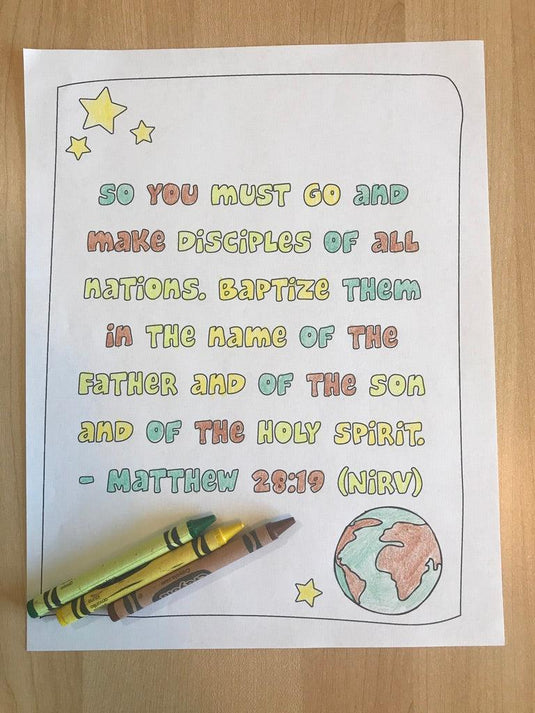 So you must go and
make disciples of all
nations. Baptize them
in the name of the
Father and of the Son
and of the Holy Spirit.
- Matthew 28:19 (NIRV)
Crayola